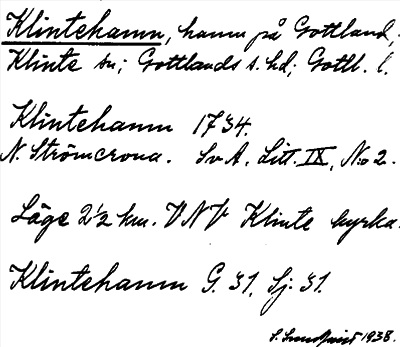 Klintehamn, hamn på Gottland,
Klinte sn; Gottlands s. hd; Gottl. l.
Klintehamn 1734.
N. Strömcrona. Sv A. Litt. IX, No 2.
Läge 2½ km. VNV Klinte kyrka.
Klintehamn G. 31, Sj. 31.
S. Sundqvist 1938.